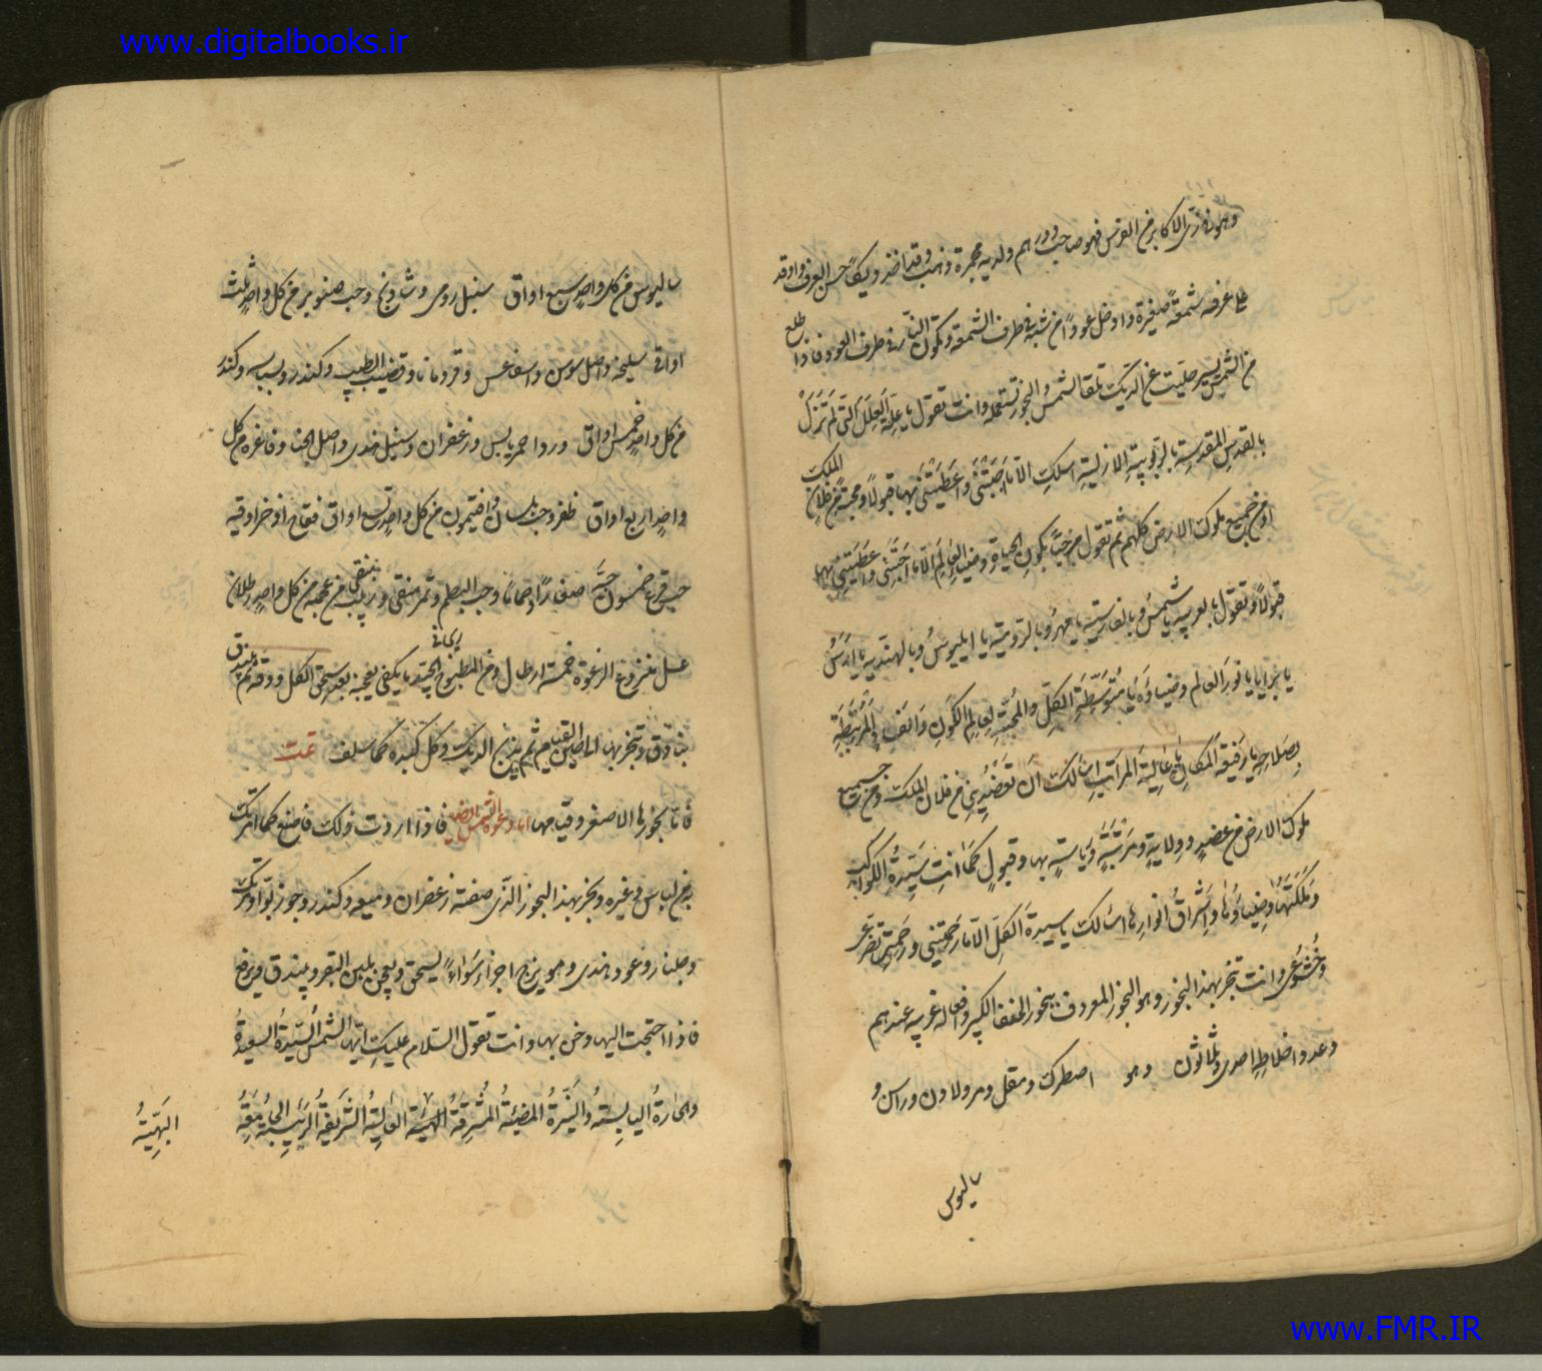 www.digitalbooks.ir
وهو في زي الاكابر من الفرس فهو صاحب دورهم ولديه مجمرة ذهب وقد اخذ ديكا حسن العرف واوقد
على عرفه شمعة صغيرة واوصل عودا من شبه في طرف الشمعة وتكون النار في طرف العود فاذا طلع
من الشمس يسير خليت عن الديك تلقا الشمس والبخور تستعمله وانت تقول يا علة العلل التي لم تزل
بالتقديس المقدسة بالربوبية الازلية اسلك الا ما اجبتني واعطيتني بها قبولا ومحبة من فلان الملك
او من جميع ملوك الارض كلهم ثم تقول مرحبا بكون الحياة وضياء العالم الا ما اجبتني واعطيتني بها
قبولا وتقول بالعربية يا شمس وبالفارسية يا مهر وبالرومية يا ايليوس وبالهندية يا
يا نور العالم وضياؤه يا متوسطة الكل والمحيية لعالم الكون والمرتبطة
بصلاحه يا رفيقة المكان يا عالية المراتب اسالك ان تعضديني من فلان الملك ومن جميع
ملوك الارض من عضد وولاية ومرتبة ورياسة بها وقبول كما انت سيدة الكواكب
وملكتها وضياؤها واشراق انوارها اسالك يا سيدة الكل الا ما رحمتيني ورحمت تضرعي
وخشوعي وانت تبخر بهذا البخور وهو البخور المعروف ببخور الخفف الكبير وافعاله غريبة عندهم
وعدد اخلاطه احدى وثلاثون وهو اصطرك ومقل ومر ولادن وراسن و
ساليوس
ساليوس من كل واحد سبع اواق سنبل رومي وشاذنج وحب صنوبر من كل واحد ثلث
اواقي سليخة واصل سوسن وقردمانا وقضيب الطيب وكندر وبسباسة وكندر
من كل واحد خمس اواق ورد احمر يابس وزعفران وسنبل هندي واصل وفاغره من كل
واحد اربع اواق ظفر وحب بلسان وافتيمون من كل واحد تسع اواق فقاح اذخر اوقية
حب قرع خمسون حبة وحب البطم وتمر منقى وزبيب منقى من عجمه من كل واحد رطلان
عسل منزوع الرغوة خمسة ارطال ومن المطبوخ الريحاني الجيد ما يكفي بعجنه بعد سحق الكل ودقه ثم يبندق
بنادق وتبخر بها الى حين القيام ثم يذبح الديك وكل كبده كما سلف تمت
فاما بخورها الاصغر وقيامها اما دعوة الشمس ايضا فاذا اردت ذلك فاصنع كما امرتك
من لباس وغيره وبخر بهذا البخور الذي صفته زعفران وميعة وكندر وجوز بوا
وجلنار وعود هندي اجزاء سواء يسحق ويعجن بلبن البقر ويبندق ويرفع
فاذا احتجت اليها دخن بها وانت تقول السلام عليك ايتها الشمس السيدة السعيدة
والحارة اليابسة والنيرة المضيئة المشرقة البهية العالية الشريفة الجامعة
البهية
www.FMR.IR